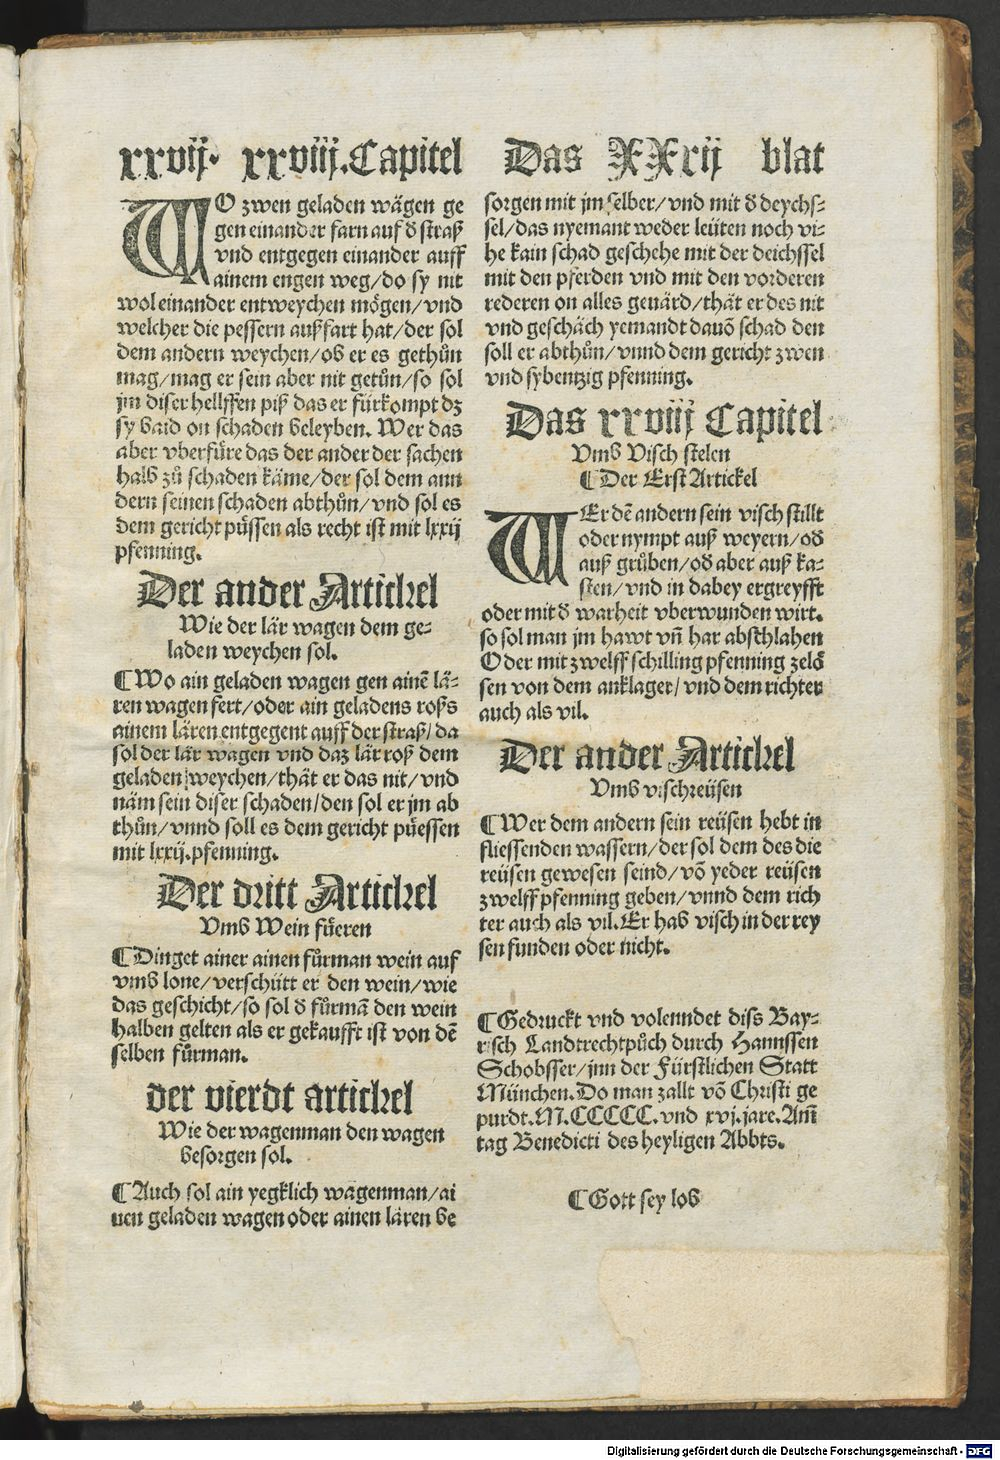 xxvij. xxviij. Capitel
WO zwen geladen wägen ge
gen einander farn auf d̄ straß
vnd entgegen einander auff
ainem engen weg/do sy nit
wol einander entweychen mögen/vnd
welcher die pessern außfart hat/der sol
dem andern weychen/ob er es gethůn
mag/mag er sein aber nit getůn/so sol
jm diser hellffen piß das er fürkompt dz
sy baid on schaden beleyben. Wer das
aber vberfüre das der ander der sachen
halb zů schaden käme/der sol dem ann
dern seinen schaden abthůn/vnd sol es
dem gericht püssen als recht ist mit lxxij
pfenning.
Der ander Artickel
Wie der lär wagen dem ge⸗
laden weychen sol.
¶Wo ain geladen wagen gen ainē lä⸗
ren wagen fert/oder ain geladens roß
ainem lären entgegent auff der straß/da
sol der lär wagen vnd daz lär roß dem
geladen weychen/thät er das nit/vnd
näm sein diser schaden/den sol er jm ab
thůn/vnnd soll es dem gericht püessen
mit lxxij.pfenning.
Der dritt Artickel
Vmb Wein füeren
¶Dinget ainer ainen fůrman wein auf
vmb lone/verschütt er den wein/wie
das geschicht/so sol d̄ fůrmā den wein
halben gelten als er gekaufft ist von dē
selben fůrman.
der vierdt artickel
Wie der wagenman den wagen
besorgen sol.
¶Auch sol ain yegklich wagenman/ai
nen geladen wagen oder ainen lären be
Das XXxij blat
sorgen mit jm selber/vnd mit d̄ deychs⸗
sel/das nyemant weder leüten noch vi⸗
he kain schad geschehe mit der deichssel
mit den pferden vnd mit den vorderen
rederen on alles geuärd/thät er des nit
vnd geschäch yemandt dauō schad den
soll er abthůn/vnnd dem gericht zwen
vnd sybentzig pfenning.
Das xxviij Capitel
Vmb Visch stelen
¶Der Erst Artickel
WEr dē andern sein visch stillt
oder nympt auß weyern/od̄
auß grůben/od̄ aber auß ka⸗
sten/vnd in dabey ergreyfft
oder mit d̄ warheit vberwunden wirt.
so sol man jm hawt vn̄ har abschlahen
Oder mit zwelff schilling pfenning zelö
sen von dem anklager/vnd dem richter
auch als vil.
Der ander Artickel
Vmb vischreüsen
¶Wer dem andern sein reüsen hebt in
fliessenden wassern/der sol dem des die
reüsen gewesen seind/vō yeder reüsen
zwelff pfenning geben/vnnd dem rich
ter auch als vil. Er hab visch in der rey
sen funden oder nicht.
¶Gedruckt vnd volenndet diss Bay⸗
risch Landtrechtpůch durch Hannssen
Schobsser/jnn der Fürstlichen Statt
München. Do man zallt vō Christi ge
purdt. M.CCCCC. vnd xvj. jare. Am̄
tag Benedicti des heyligen Abbts.
¶Gott sey lob
Digitalisierung gefördert durch die Deutsche Forschungsgemeinschaft - DFG